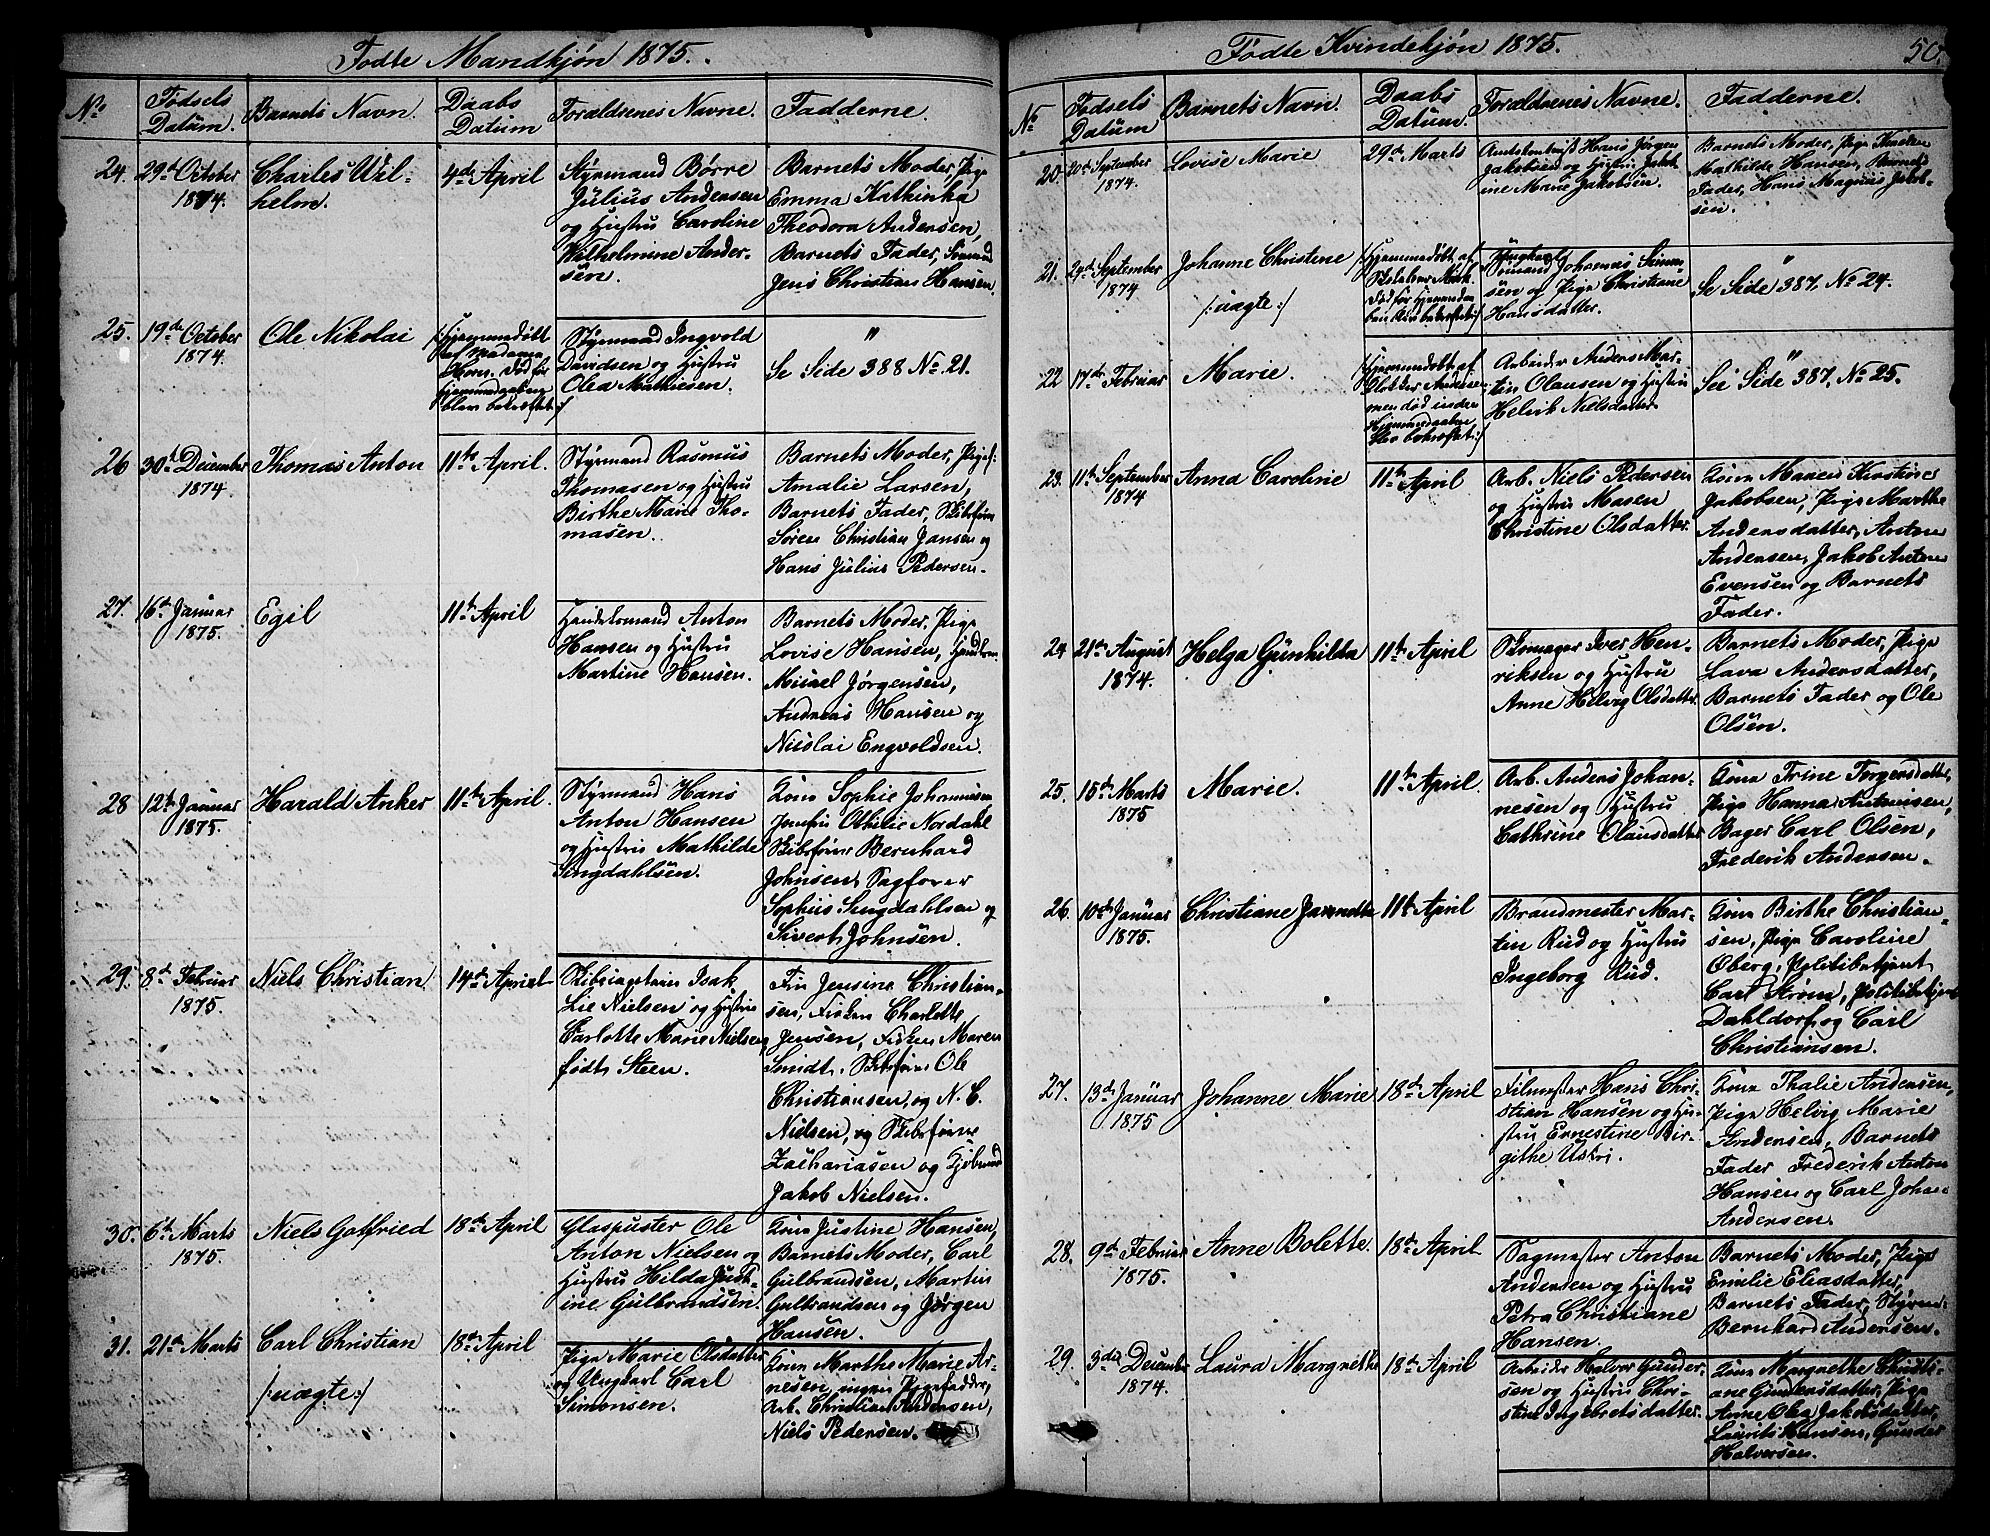 Fødte Mandkjøn 1875.
No
Fødsels Datum.
Barnets Navn.
Daabs Datum
Forældrenes Navne.
Fadderne.
24.
29de October
1874.
Charles Wil-
helm.
4de April
Styrmand Børre
Julius Andersen
og Hustru Caroline
Wilhelmine Ander-
sen.
Barnets Moder, Pige
Emma Kathinka
Theodora Andersen,
Barnets Fader, Sømand
Jens Christian Hansen.
25.
19de October
1874.
Ole Nikolai
/:Hjemmedøbt
af Madame
Horn. Død før
Hjemmedaaben
blev bekræftet:/
Styrmand Ingvold
Davidsen og Hustru
Olea Mathiesen.
"
Se Side 388 No 21.
26
30te December
1874.
Thomas Anton
11te April.
Styrmand Rasmus
Thomasen og Hustru
Birthe Marie Tho-
masen.
Barnets Moder, Pige
Amalie Larsen,
Barnets Fader, Skibsfører
Søren Christian Jansen og
Hans Julius Pedersen.
27.
16de Januar
1875.
Egil
11te April
Handelsmand Anton
Hansen og Hustru
Martine Hansen.
Barnets Moder, Pige
Lovise Hansen,
Mikael Jørgensen,
Andreas Hansen og
Nicolai Engvoldsen.
28
12te Januar
1875.
Harald Anker
11te April.
Styrmand Hans
Anton Hansen
og Hustru Mathilde
Syngdahlsen.
Kone Sophie Johannesen
Jomfru Othilie Nordahl
Skibsfører Bernhard
Johnsen, Sagfører
Sophus Syngdahlsen og
Sivert Johnsen.
29.
8de Februar
1875.
Niels Christian
14de April
Skibscaptain Isak
Lie Nielsen og Hustru
Carlotte Marie Nielsen
født Steen.
Fru Jensine Christian-
sen, Frøken Charlotte
Jensen, Frøken Maren
Smidt, Skibsfører Ole
Christiansen, og N. C.
Nielsen, og Skibsfører
Zachariasen og Kjøbmand
Jakob Nielsen.
30.
6te Marts
1875.
Niels Gotfried
18de April
Glaspuster Ole
Anton Nielsen og
Hustru Hilda Just-
ine Gulbrandsen.
Kone Justine Hansen,
Barnets Moder, Carl
Gulbrandsen, Martin
Gulbrandsen og Jørgen
Hansen.
31.
21de Marts
Carl Christian
/:uægte:/
18de April
Pige Marie Olsdatter
og Ungkarl Carl
Simonsen.
Kone Marthe Marie Ar-
nesen, ingen Pigefadder,
Arb. Christian Andersen,
Niels Pedersen.
Fødte Kvindekjøn 1875.
50.
No
Fødsels Datum
Barnets Navn.
Daabs Datum.
Forældrenes Navne.
Fadderne.
20.
20de September
1874.
Lovise Marie
29de Marts
Hans Jørgen
Jakobsen og Hustru Jakob-
ine Marie Jakobsen.
Barnets Moder, Pige
Mathilde Hansen, Barnets
Fader, Hans Magnus Jakob-
sen.
21.
24de September
1874
Johanne Christine
/:uægte:/
/:Hjemmedøbt af
Død før Hjemmedaa-
ben blev bekræftet:/
Ungkarl
Sømand Johannes Simon-
sen og Pige Christiane
Hansdatter.
"
Se Side 387. No 24.
22
17de Februar
Marie.
/:Hjemmedøbt af
Klokker Andersen
men død inden
Hjemmedaaben
blev bekræftet:/
Arbeider Anders Mar-
tin Olausen og Hustru
Helvik Nielsdatter.
"
See Side 387. No 25.
23.
11te September
1874
Anna Caroline
11te April
Arb. Niels Pedersen
og Hustru Maren
Christine Olsdatter.
Kone Maren Kirstine
Jakobsen, Pige Marthe
Andersdatter, Anton
Andersen, Jakob Anton
Evensen og Barnets
Fader.
24
21de August
1874.
Helga Gunhilda
11te April
Skomager Iver Hen-
riksen og Hustru
Anne Helvig Olsdatter.
Barnets Moder, Pige
Lava Andersdatter,
Barnets Fader og Ole
Olsen.
25.
15de Marts
1875
Marie.
11te April.
Arb. Anders Johan-
nesen og Hustru
Cathrine Olausdatter
Kone Trine Torgersdatter,
Pige Hanna Antonisen,
Bager Carl Olsen,
Frederik Andersen.
26.
10de Januar
1875.
Christiane Jannette
11te April
Brandmester Mar-
tin Rud og Hustru
Ingeborg Rud.
Kone Birthe Christian-
sen, Pige Caroline
Øberg, Politibetjent
Carl Strøm, Politibetjent
Dahldorf, og Carl
Christiansen.
27.
13de Januar
1875
Johanne Marie
18de April
Filmester Hans Chri-
stian Hansen og Hu-
stru Ernestine Bir-
githe Ustri.
Kone Thalie Andersen,
Pige Helvig Marie
Andersen, Barnets
Fader Frederik Anton
Hansen og Carl Johan
Andersen.
28.
9de Februar
1875.
Anne Bolette.
18de April
Sagmester Anton
Andersen og Hustru
Petra Christiane
Hansen.
Barnets Moder, Pige
Emilie Eliasdatter,
Barnets Fader, Styrmd.
Bernhard Andersen.
29.
3die December
1874.
Laura Margrethe
18de April
Arbeider Halvor Gunder-
sen og Hustru Chri-
stine Ingebretsdatter.
Kone Margrethe Christi-
ane Gundersdatter, Pige
Anne Olea Jakobsdatter,
Laurits Hansen, Gunder
Halvorsen.